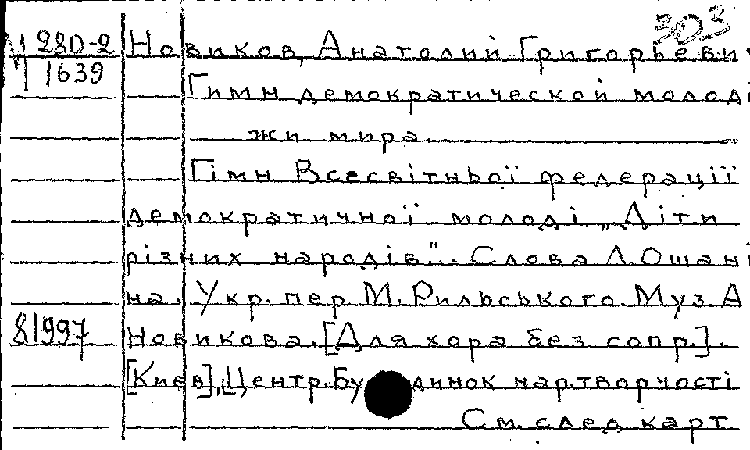 303
М 280-2
1639
Новиков, Анатолий Григорьевич
Гимн демократической молоде
жи мира.
Гімн Всесвітньої федерації
демократичної молоді „Діти
різних народів". Слова Л. Ошані
на. Укр. пер. М. Рильського. Муз. А
Новикова. [Для хора без сопр.].
81997
[Київ], Центр. Будинок нар. творчості
См. след. карт.